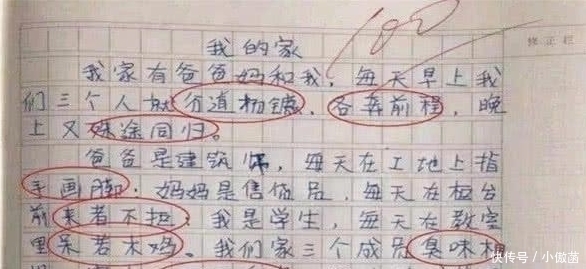 我的家
100
修正栏
我家有爸爸妈和我，每天早上我
们三个人就分道扬镳，各奔前程，晚
上又殊途同归。
爸爸是建筑师，每天在工地上指
手画脚。妈妈是售货员，每天在柜台
前来者不拒。我是学生，每天在教室
里呆若木鸡。我们家三个成员臭味相
快传号/小傲菡